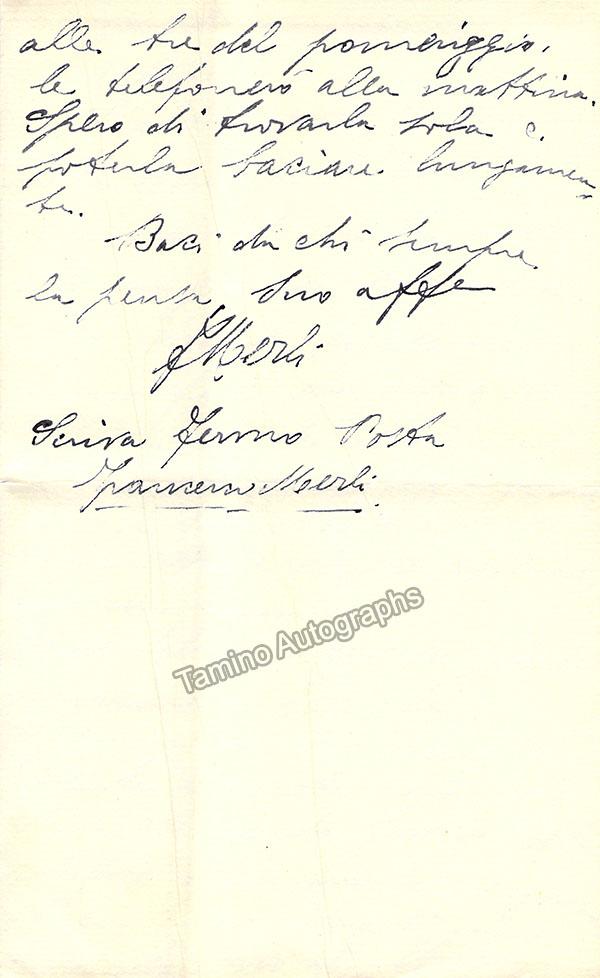 alle tre del pomeriggio.
le telefonerò alla mattina.
Spero di trovarla sola e.
poterla baciare lungamen-
te.
Baci da chi sempre
la pensa suo affe
FMerli
Scriva Fermo Posta
Francesco Merli.
Tamino Autographs